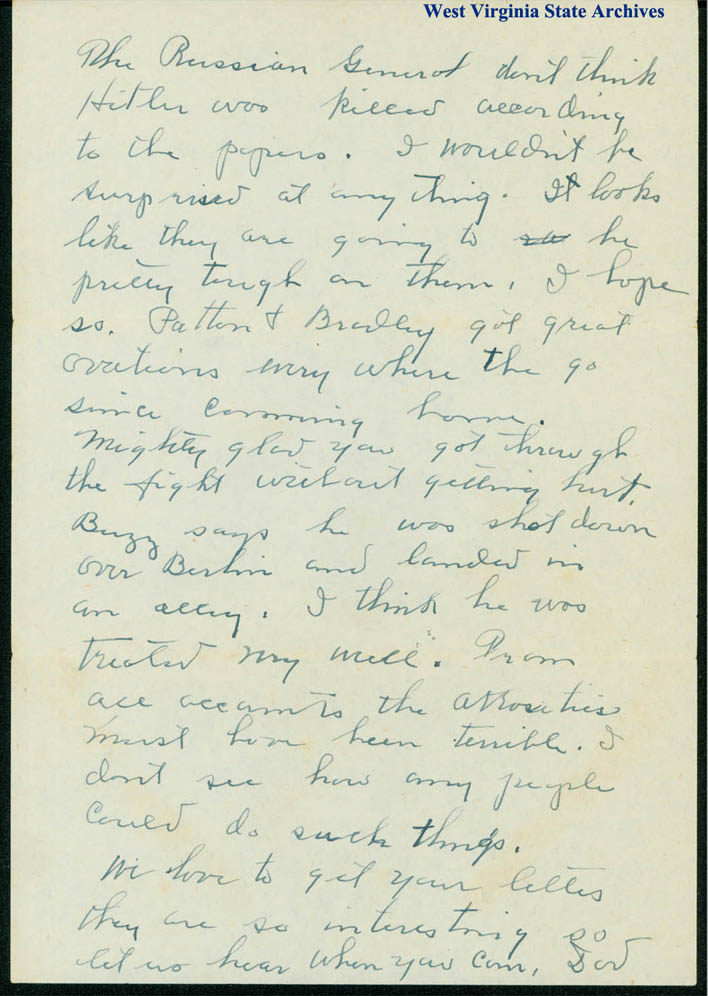 West Virginia State Archives
The Russian General don't think
Hitler was killed according
to the papers. I wouldn't be
surprised at any thing. It looks
like they are going to be
pretty tough on them. I hope
so. Patton & Bradley got great
ovations every where the go
since comming home.
Mighty glad you got through
the fight without getting hurt.
Buzz says he was shot down
over Berlin and landed in
an alley. I think he was
treated very well. From
all accounts the attrosities
must have been terrible. I
don't see how any people
could do such things.
We love to get your letters
they are so interesting so
let us hear when you can, Dad